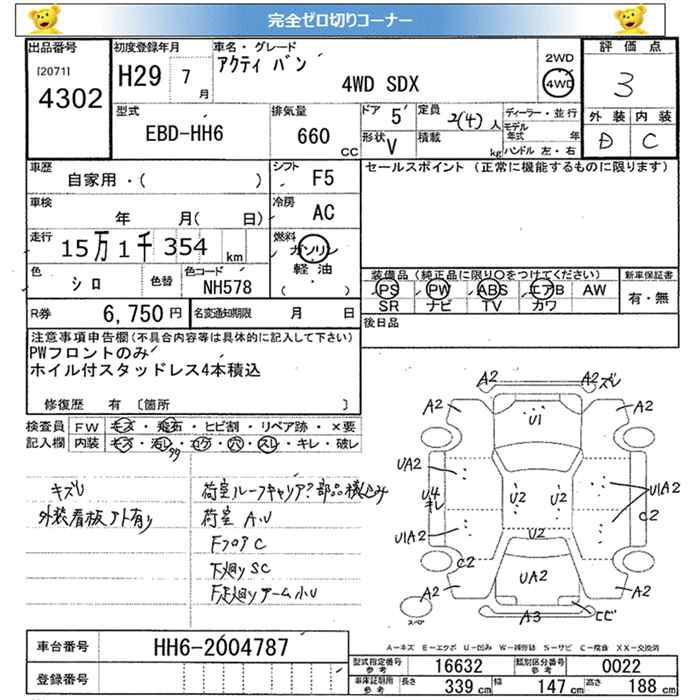 完全ゼロ切りコーナー
出品番号 初度登録年月 車名・グレード 評価点
[2071] 4302 H29 7月 アクティ バン 4WD SDX 2WD 4WD 3
型式 排気量 ドア 5 定員 2(4)人 ディーラー・並行 外装 内装
EBD-HH6 660 CC 形状 V 積載 kg モデル年式 年 ハンドル 左・右 D C
車歴 シフト F5 セールスポイント (正常に機能するものに限ります)
自家用・( )
車検 年 月( 日) 冷房 AC
走行 15万1千354 km 燃料 ガソリン 軽油 ( ・ )
装備品 (純正品に限り○をつけてください) 新車保証書
色 シロ 色替 色コード NH578 PS PW ABS エアB AW 有・無
SR ナビ TV カワ
R券 6,750円 名変通知期限 月 日 後日品
注意事項申告欄(不具合内容等は具体的に記入して下さい)
PWフロントのみ
ホイル付スタッドレス4本積込
修復歴 有 〔箇所 〕
検査員 FW キズ・飛石・ヒビ割・リペア跡・×要
記入欄 内装 キズ・汚レ・コゲ・穴・スレ・キレ・破レ
キズU 荷室ルーフキャリア?部品積込み
外装看板アト有り 荷室 A.U
FフロアC
下廻りSC
F足廻りアーム小U
A2 A2 ズレ
A2 U1 A2
UA2 U4 キレ U2 U2 U1A2
U1A2 C2 U2 C2
A2 UA2 A2
スペア A3 ヒビ
A-キズ E-エクボ U-凹み W-補修跡 S-サビ C-腐食 XX-交換済
車台番号 HH6-2004787
型式指定番号 参考 16632 類別区分番号 参考 0022
登録番号 車庫証明用 参考 長さ 339cm 幅 147cm 高さ 188cm